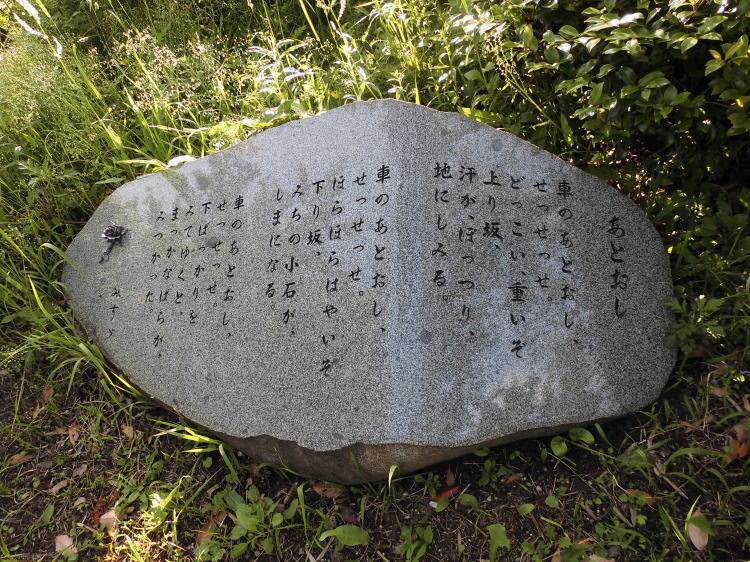 あとおし
車のあとおし、
せっせっせ。
どっこい、重いぞ
上り坂、
汗が、ぽっつり、
地にしみる。
車のあとおし、
せっせっせ。
ほらほらはやいぞ
下り坂、
みちの小石が、
しまになる。
車のあとおし、
せっせっせ。
下ばっかりを
みてゆくと、
まっかなばらが、
みつかった
みすゞ